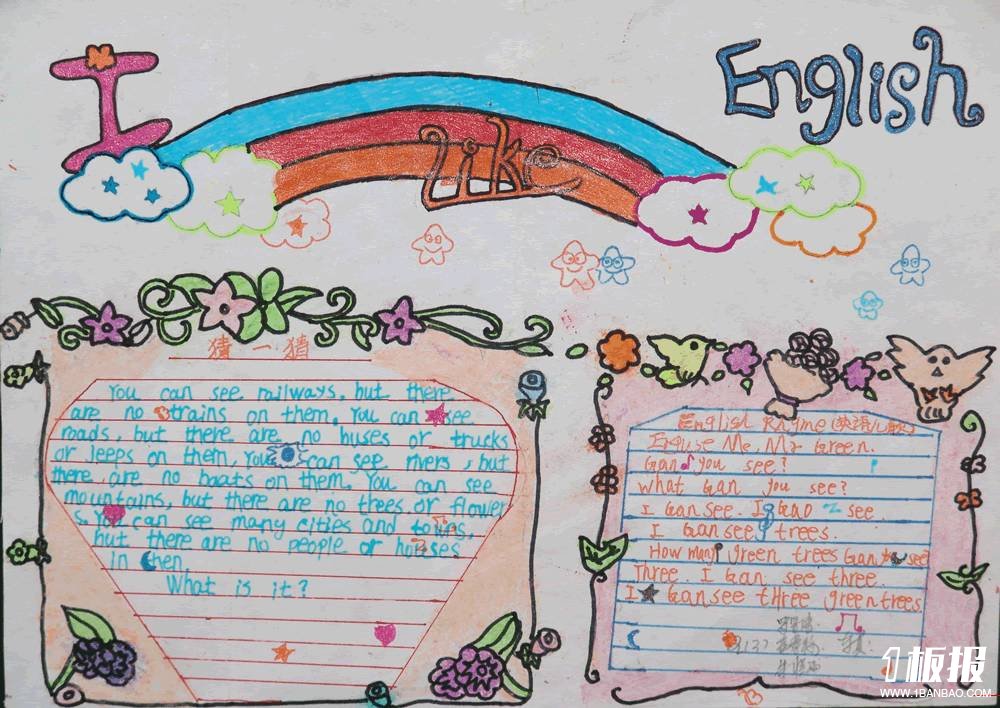 I
Like
English
猜一猜
You can see railways, but there
are no trains on them. You can see
roads, but there are no buses or trucks
or Jeeps on them, You can see rivers, but
there are no boats on them. You can see
mountains, but there are no thees or flower
s. You can see many cities and towns,
but there are no people or houses
in then.
What is it?
English Rhyme
Me, Mr Green.
Can you see?
what can you see?
I can see. I can see
I can see trees.
How many green trees can see
Three. I can see three.
I can see three green trees
1板报
WWW.1BANBAO.COM